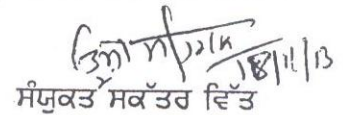 18/11/13
ਸੰਯੁਕਤ ਸਕੱਤਰ ਵਿੱਤ